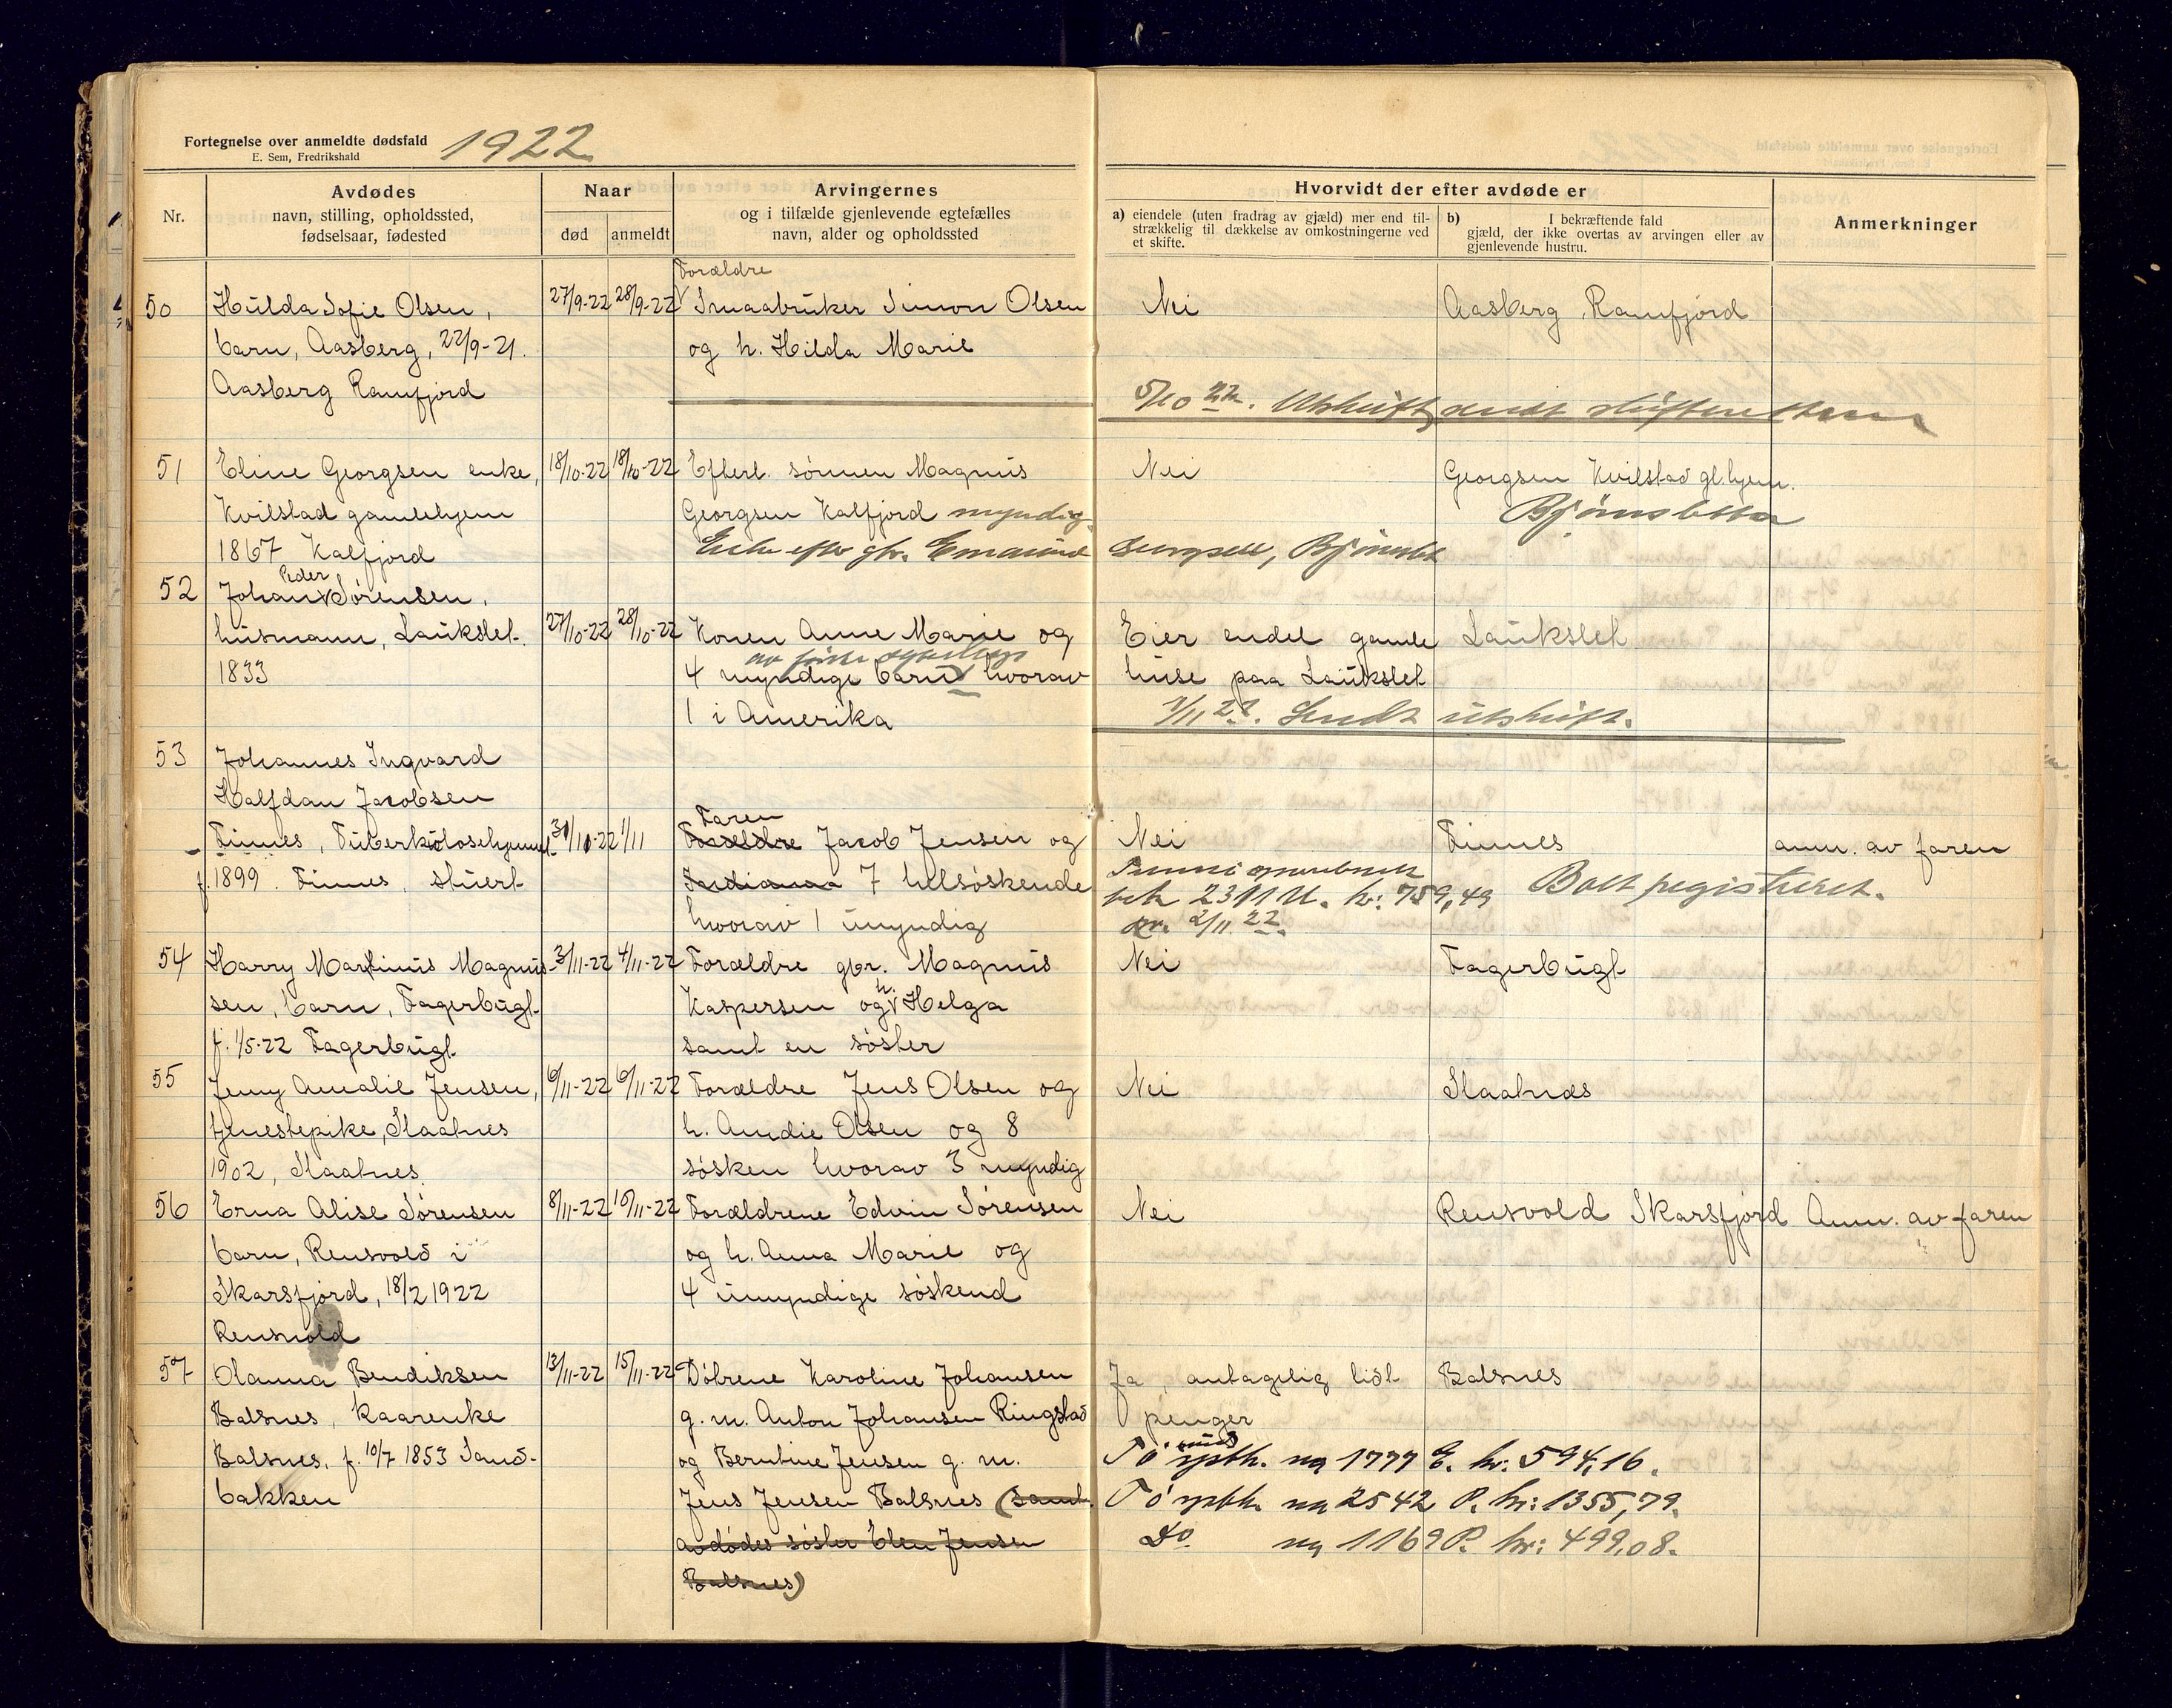 Fortegnelse over anmeldte dødsfald 1922
E. Sem, Fredrikshald
Nr.
Avdødes
navn, stilling, opholdssted,
fødselsaar, fødested
Naar
død
anmeldt
Arvingernes
og i tilfælde gjenlevende egtefælles
navn, alder og opholdssted
Hvorvidt der efter avdøde er
a) eiendele (uten fradrag av gjæld) mer end til-
strækkelig til dækkelse av omkostningerne ved
et skifte.
b) I bekræftende fald
gjæld, der ikke overtas av arvingen eller av
gjenlevende hustru.
Anmerkninger
50
Hulda Sofie Olsen,
barn, Aasberg, 22/9-21.
Aasberg Ramfjord
27/9-22
28/9-22
Forældre
Smaabruker Simon Olsen
og h. Hilda Marie
Nei
Aasberg, Ramfjord
5/10 22. Utskrift sendt skifteretten
51
Eline Georgsen enke,
Kvilstad gamlehjem
1867 Kalfjord
18/10-22
18/10-22
Efterl. sønnen Magnus
Georgsen Kalfjord myndig.
Enke efter gbr. Georgsen,
Nei
Georgsen Kvilstad gl.hjem.
52
Johan Peder Sørensen,
husmann, Laukslet.
1833
27/10-22
28/10-22
Konen Anne Marie og
av første egteskap
4 myndige barn hvorav
1 i Amerika
Eier endel gamle
huse paa Laukslet
Laukslet
1/11 22. Sendt utskrift.
53
Johannes Ingvard
Halfdan Jacobsen
Finnes, Tuberkulosehjemmet
f. 1899. Finnes, stuert
31/10-22
1/11
Faren
Forældre Jacob Jensen og
7 helsøskende
hvorav 1 umyndig
Nei
bok 2311 U. kr: 759,49
pr. 2/11 22.
Finnes
Boet registreret.
anm. av faren
54
Harry Martinus Magnus-
sen, barn, Fagerbugt.
f. 1/5-22 Fagerbugt
3/11-22
4/11-22
Forældre gbr. Magnus
Kaspersen og h. Helga
samt en søster
Nei
Fagerbugt
55
Jenny Amalie Jensen,
tjenestepike, Slaatnes
1902, Slaatnes.
6/11-22
6/11-22
Forældre Jens Olsen og
h. Amdie Olsen og 8
søsken hvorav 3 myndig
Nei
Slaatnes
56
Erna Alise Sørensen
barn, Rensvold i
Skarsfjord, 18/2 1922
Rensvold
8/11-22
10/11-22
Forældrene Edvin Sørensen
og h. Anna Marie og
4 umyndige søskend
Nei
Rensvold Skarsfjord
Anm. av faren
57
Olanna Bendiksen
Balsnes, kaarenke
Balsnes, f. 10/7 1853 Sand-
bakken
13/11-22
15/11-22
Døtrene Karoline Johansen
g. m. Anton Johansen Ringstad
og Berntine Jensen g. m.
Jens Jensen Balsnes (samt
avdødes søster Elen Jensen
Balsnes)
Ja, antagelig lidt
penger
Balsnes
Tø spbk. no 1777 E. kr: 594,16.
Tø spbk. no 2542 P. kr: 1355,79.
Do. no 1169 P. kr: 499,08.